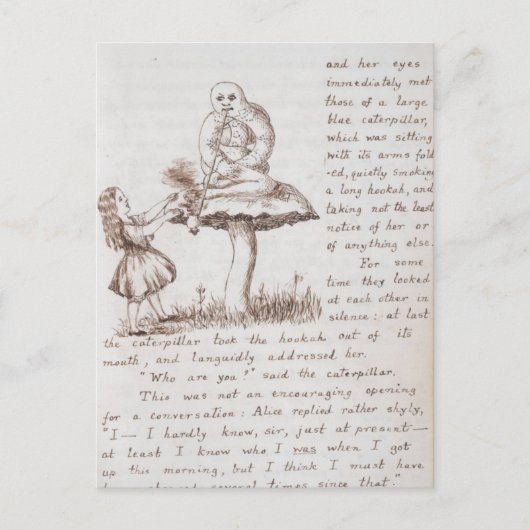 and her eyes
immediately met
those of a large
blue caterpillar,
which was sitting
with its arms fold
-ed, quietly smoking
a long hookah, and
taking not the least
notice of her or
of anything else.
For some
time they looked
at each other in
silence: at last
the caterpillar took the hookah out of its
mouth, and languidly addressed her.
"Who are you?" said the caterpillar.
This was not an encouraging opening
for a conversation: Alice replied rather shyly,
"I— I hardly know, sir, just at present—
at least I know who I was when I got
up this morning, but I think I must have
been changed several times since that."